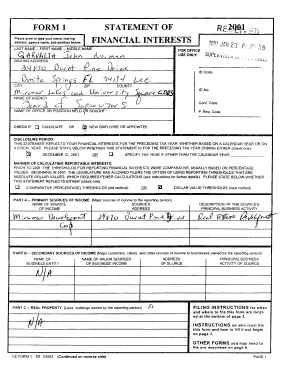 FORM 1 STATEMENT OF FINANCIAL INTERESTS 2001
Please print or type your name, mailing address, agency name, and position below:
FOR OFFICE USE ONLY:
LAST NAME - FIRST NAME - MIDDLE NAME
John Norman
MAILING ADDRESS
Burnt Pine Drive
CITY ZIP COUNTY
Bonita Springs FL 34134 Lee
Miromar Lakes and University Square CDDS
NAME OF AGENCY
Board of Supervisors
NAME OF OFFICE OR POSITION HELD OR SOUGHT
ID Code
ID No.
Conf. Code
P. Req. Code
CHECK IF CANDIDATE OR NEW EMPLOYEE OR APPOINTEE
DISCLOSURE PERIOD:
THIS STATEMENT REFLECTS YOUR FINANCIAL INTERESTS FOR THE PRECEDING TAX YEAR, WHETHER BASED ON A CALENDAR YEAR OR ON A FISCAL YEAR. PLEASE STATE BELOW WHETHER THIS STATEMENT IS FOR THE PRECEDING TAX YEAR ENDING EITHER (check one):
DECEMBER 31, 2001 OR SPECIFY TAX YEAR IF OTHER THAN THE CALENDAR YEAR:
MANNER OF CALCULATING REPORTABLE INTERESTS:
PRIOR TO 2001, THE THRESHOLDS FOR REPORTING FINANCIAL INTERESTS WERE COMPARATIVE, USUALLY BASED ON PERCENTAGE VALUES. BEGINNING IN 2001, THE LEGISLATURE HAS ALLOWED FILERS THE OPTION OF USING REPORTING THRESHOLDS THAT ARE ABSOLUTE DOLLAR VALUES, WHICH REQUIRES FEWER CALCULATIONS (see instructions for further details). PLEASE STATE BELOW WHETHER THIS STATEMENT REFLECTS EITHER (check one):
COMPARATIVE (PERCENTAGE) THRESHOLDS (old method) OR DOLLAR VALUE THRESHOLDS (new method)
PART A -- PRIMARY SOURCES OF INCOME
NAME OF SOURCE OF INCOME SOURCE'S ADDRESS DESCRIPTION OF THE SOURCE'S PRINCIPAL BUSINESS ACTIVITY
Miromar Development Corp Burnt Pine Drive Real Estate
PART B -- SECONDARY SOURCES OF INCOME
NAME OF BUSINESS ENTITY NAME OF MAJOR SOURCES OF BUSINESS' INCOME ADDRESS OF SOURCE PRINCIPAL BUSINESS ACTIVITY OF SOURCE
N/A
PART C -- REAL PROPERTY
N/A
FILING INSTRUCTIONS for when and where to file this form are located at the bottom of page 2.
INSTRUCTIONS on who must file this form and how to fill it out begin on page 3.
OTHER FORMS you may need to file are described on page 6.
CE FORM 1 - Eff. 1/2002 (Continued on reverse side) PAGE 1